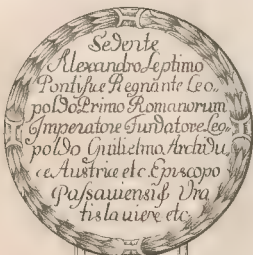 Sedente
Alexandro Septimo
Pontifice Regnante Leo„
poldo Primo Romanorum
Imperatore Fundatore Leo„
poldo Guilielmo Archidu„
ce Austriæ etc. Episcopo
Passaviensi & Vra
tislaviere etc